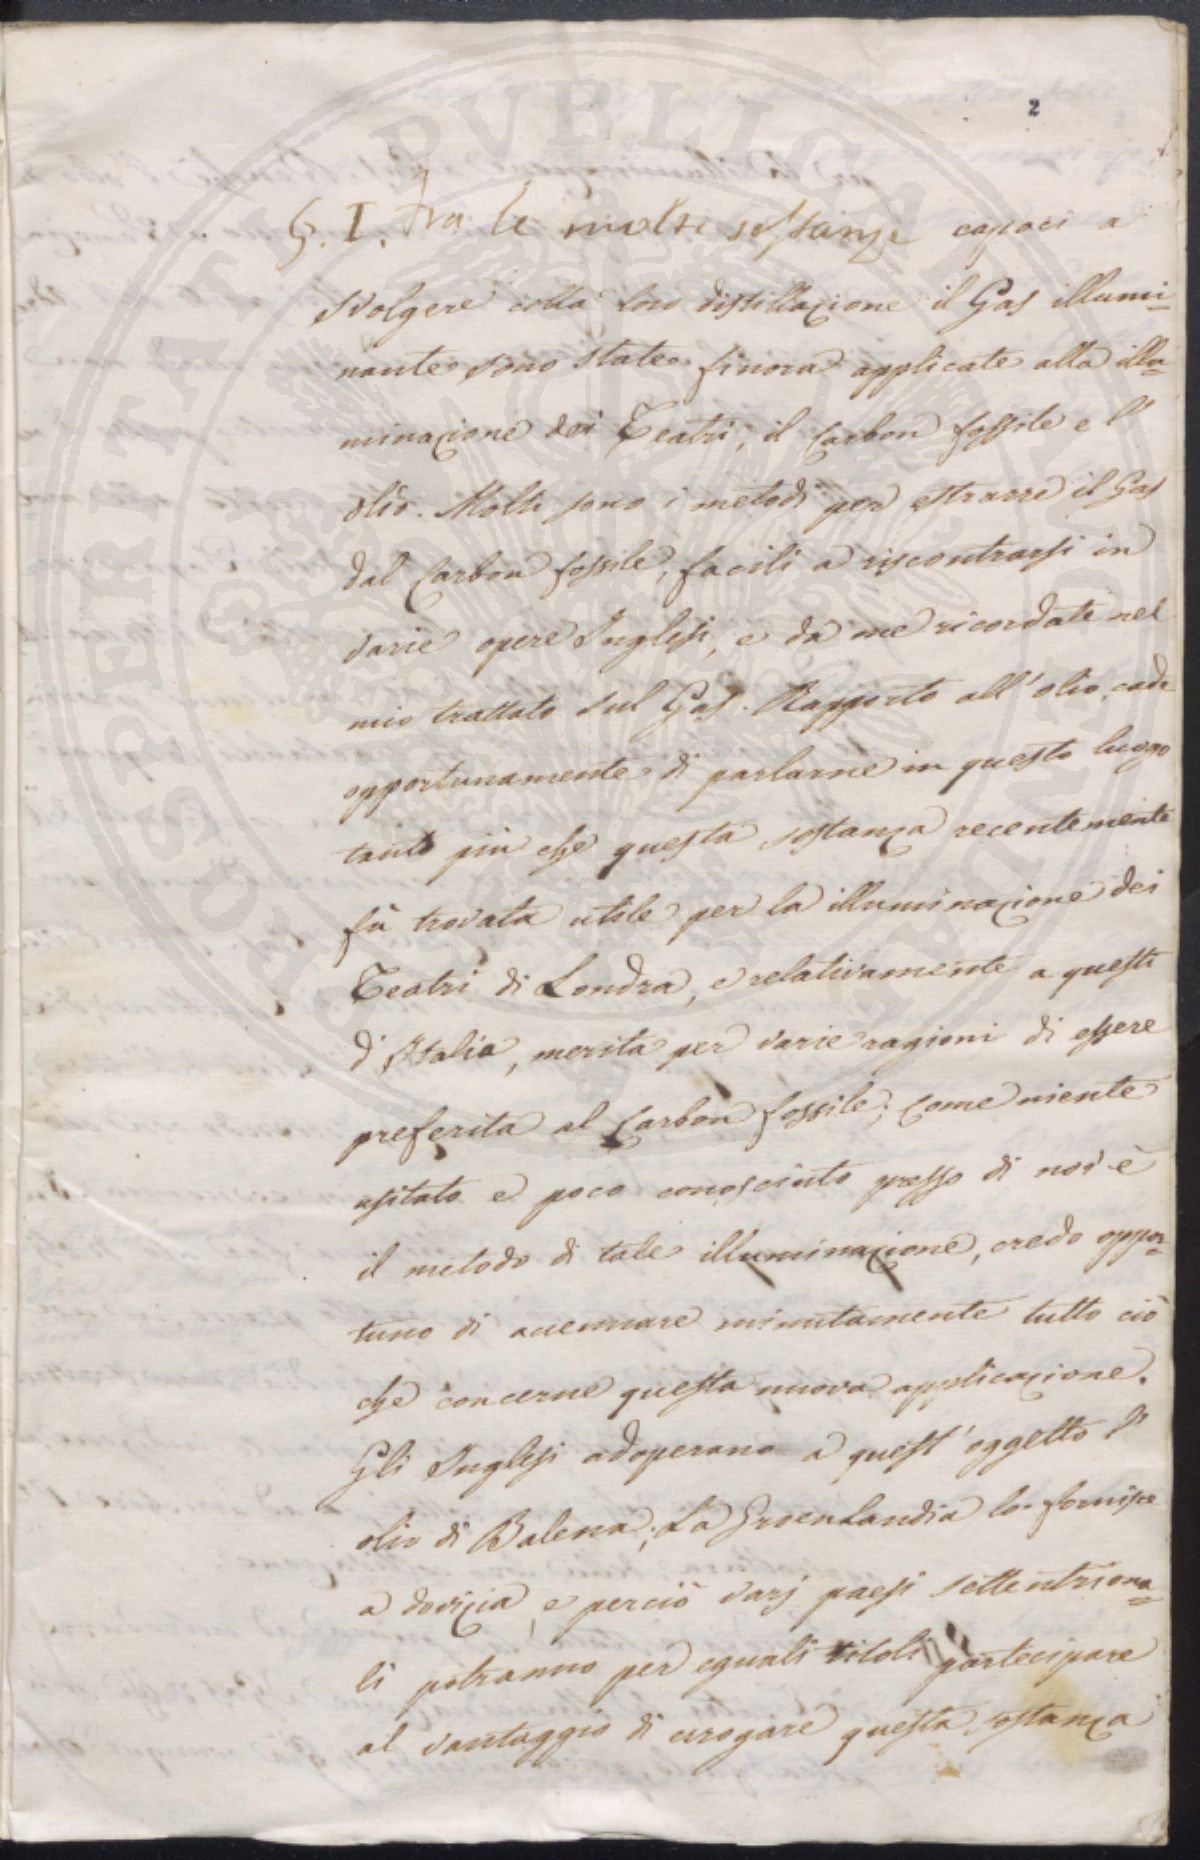 2
§. I. Fra le molte sostanze capaci a
svolgere colla loro distillazione il Gas illumi=
nante sono state finora applicate alla illu=
minazione dei Teatri, il Carbon fossile e l'
olio. Molti sono i metodi per estrarre il Gas
dal Carbon fossile, facili a riscontrarsi in
varie opere Inglesi, e da me ricordate nel
mio trattato sul Gas. Rapporto all'olio, cade
opportunamente di parlarne in questo luogo
tanto più che questa sostanza recentemente
fù trovata utile per la illuminazione dei
Teatri di Londra, e relativamente a questi
d'Italia, merita per varie ragioni di essere
preferita al Carbon fossile; come niente
usitato e poco conosciuto presso di noi è
il metodo di tale illuminazione, credo oppor=
tuno di accennare minutamente tutto ciò
che concerne questa nuova applicazione.
Gli Inglesi adoperano a quest'oggetto l'
olio di Balena; La Groenlandia lo fornisce
a dovizia, e perciò varj paesi settentriona=
li potranno per eguali titoli partecipare
al vantaggio di erogare questa sostanza
PROSPERITATI PVBLICAE AVGENDAE